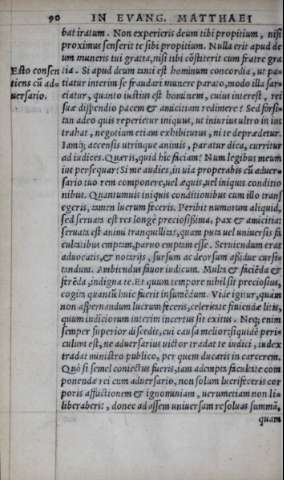 90 IN EVANG. MATTHAEI
bat iratum. Non experieris deum tibi propitium, nisi
proximus senserit te sibi propitium. Nulla erit apud de
um munens tui gratia, nisi tibi cōstiterit cum fratre gra
Esto consen
tia. Si apud deum tanti est hominum concordia, ut pa-
tiens cū ad-
tiatur interim se fraudari munere parato, modo illa sar-
uersario.
ciatur, quanto iustius est homines, cuius interest, rei
suæ dispendio pacem & amicitiam redimere? Sed forsi-
tan adeo quis reperietur iniquus, ut iniurius ultro in ius
trahat, negotium etiam exhibiturus, ni te depradetur.
Iamq; accensis utrinque animis, paratur dica, curritur
ad iudices. Quæris, quid hic faciam? Num legibus meum
ius persequar? Si me audies, in uia properabis cū aduer-
sario tuo rem componere, uel æquis, uel iniquis conditio
nibus. Quantumuis iniquis conditionibus cum illo trans
egeris, tamen lucrum feceris. Peribit nummorum aliquid,
sed seruata est res longè preciosissima, pax & amicitia:
seruata est animi tranquillitas, quam puta uel uniuersis fa
cultatibus emptam, paruo emptam esse. Seruiendum erat
aduocatis, & notarijs, sursum ac deorsum assidue cursi-
tandum. Ambiendus fauor iudicum. Multa & faciēda &
ferēda, indigna te. Et quum tempore nihil sit preciosius,
cogita quantū huic fuerit insumēdum. Vide igitur, quàm
non aspernandum lucrum feceris, celeritate finiendæ litis,
quum iudiciorum interim incertus sit exitus. Neq; enim
semper superior discedit, cui causa melior: siquidē peri-
culum est, ne aduersarius uictor tradat te iudici, iudex
tradat ministro publico, per quem ducaris in carcerem.
Quò si semel coniectus fueris, iam adempta facultate com
ponendæ rei cum aduersario, non solum lucrifeceris cor
poris afflictionem & ignominiam, uerumetiam non li-
liberaberis, donec ad assem uniuersam resoluas summā,
quam